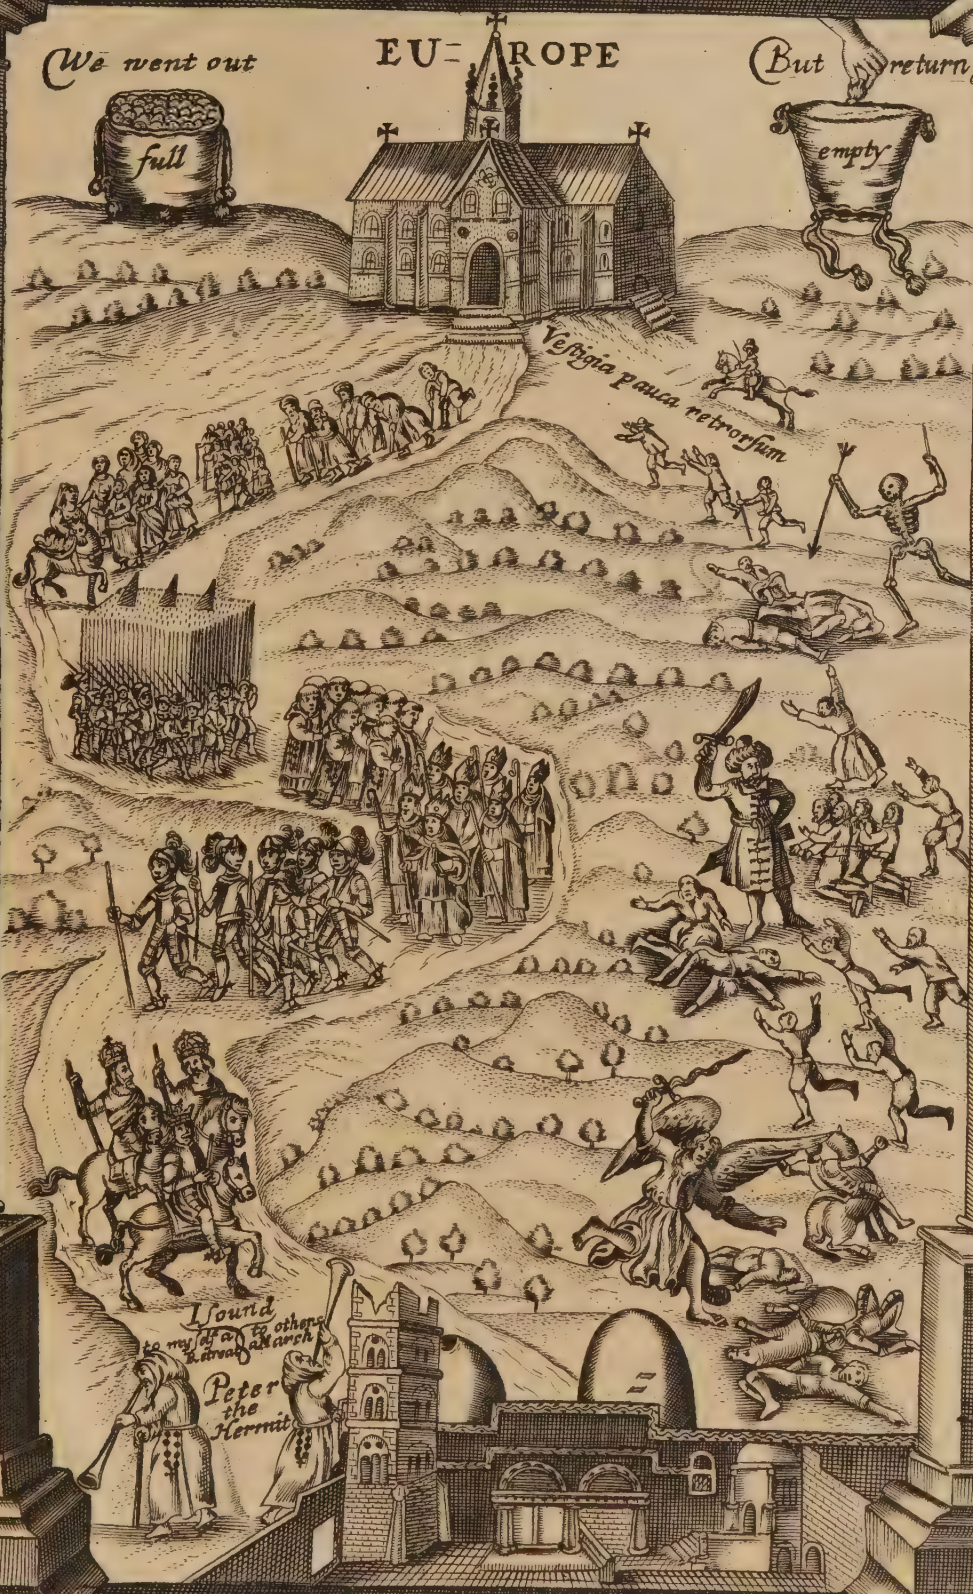 We went out
full
EU=ROPE
But return
empty
Vestigia pauca retrorsum
I sound
to my self a to others
Retreat a March
Peter
the
Hermit